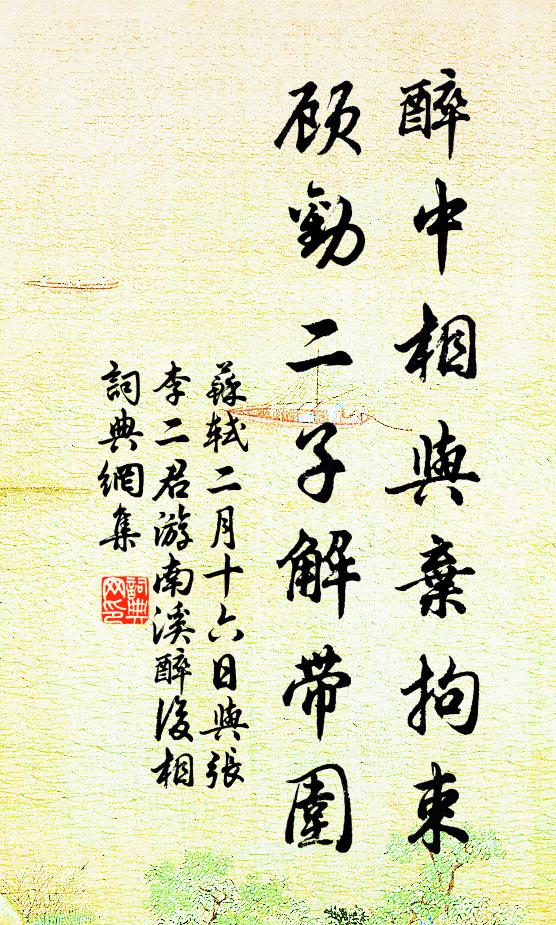 醉中相與棄拘束
顾勸二子解帶圍
蘇軾二月十六日與張
李二君游南溪醉後相
詞典網集
詞典
网印